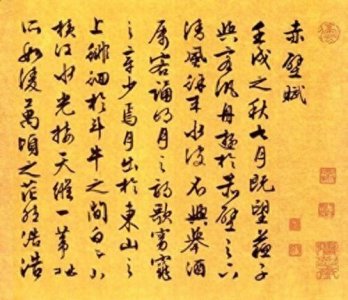 赤壁賦
壬戌之秋七月既望蘇子
與客泛舟遊於赤壁之下
清風徐來水波不興舉酒
屬客誦明月之詩歌窈窕
之章少焉月出於東山之
上徘徊於斗牛之間白露
橫江水光接天縱一葦之
所如凌萬頃之茫然浩浩